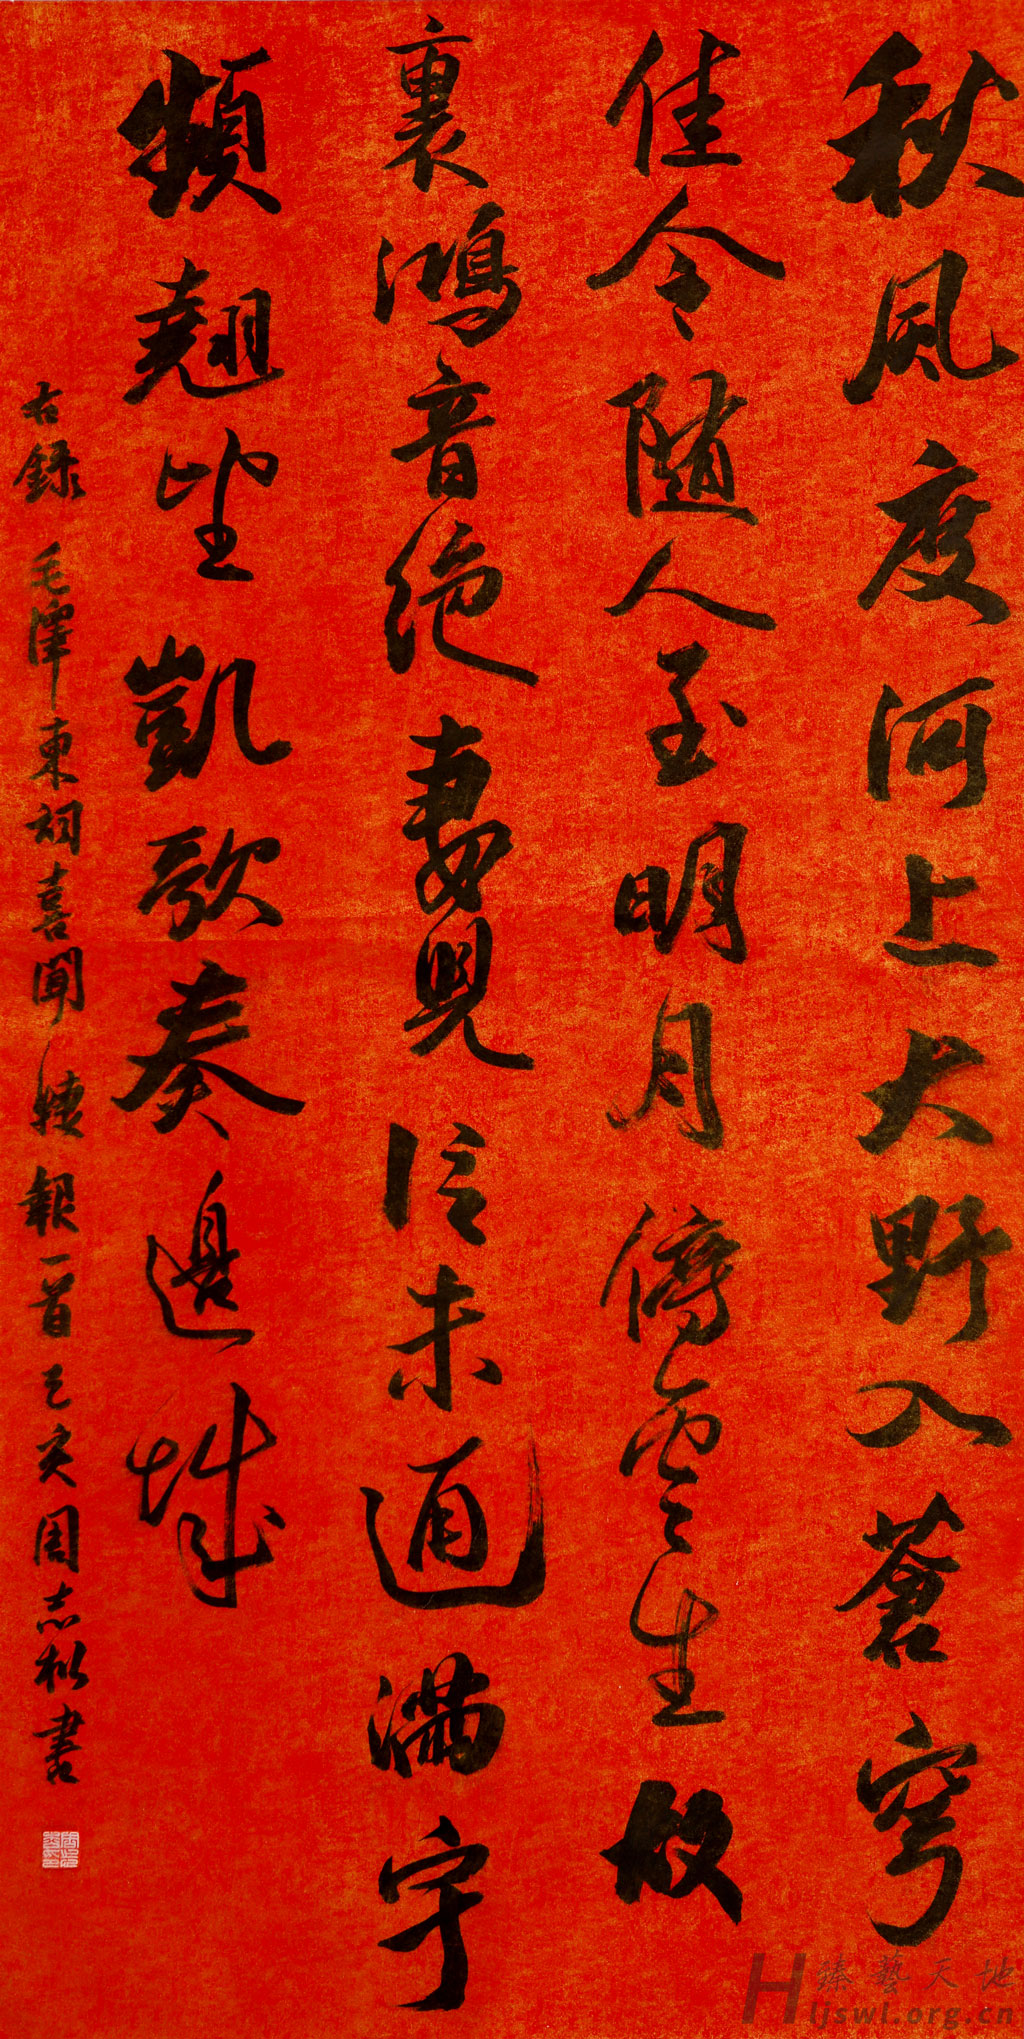 秋風度河上大野入蒼穹
佳令隨人至明月傍雲生故
裏鴻音絕妻兒信未通滿宇
頻翹望凱歌奏邊城
右錄毛澤東詞喜聞捷報一首己亥周志松書
臻藝天地
Hljswl.org.cn